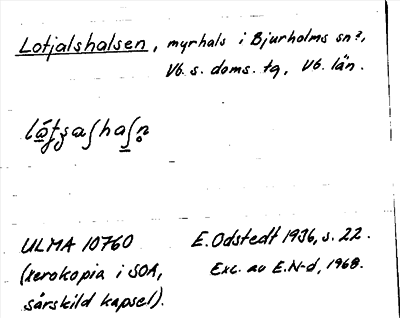 Lotjalshalsen, myrhals i Bjurholms sn?,
Vb. s. doms. tg, Vb. län.
ULMA 10760 E. Odstedt 1936, s. 22.
(xerokopia i SOA, Exc. av E. N-d, 1968.
särskild kapsel).